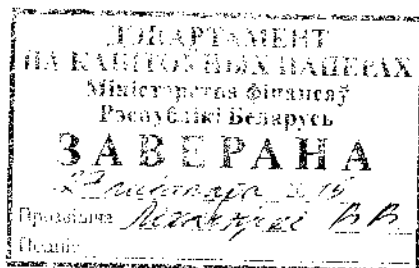 ДЭПАРТАМЕНТ
ПА КАШТОЎНЫХ ПАПЕРАХ
Міністэрства фінансаў
Рэспублікі Беларусь
ЗАВЕРАНА
Прозвішча В В
Подпіс